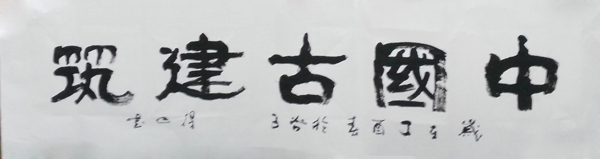 中國古建筑
歲在丁酉春於